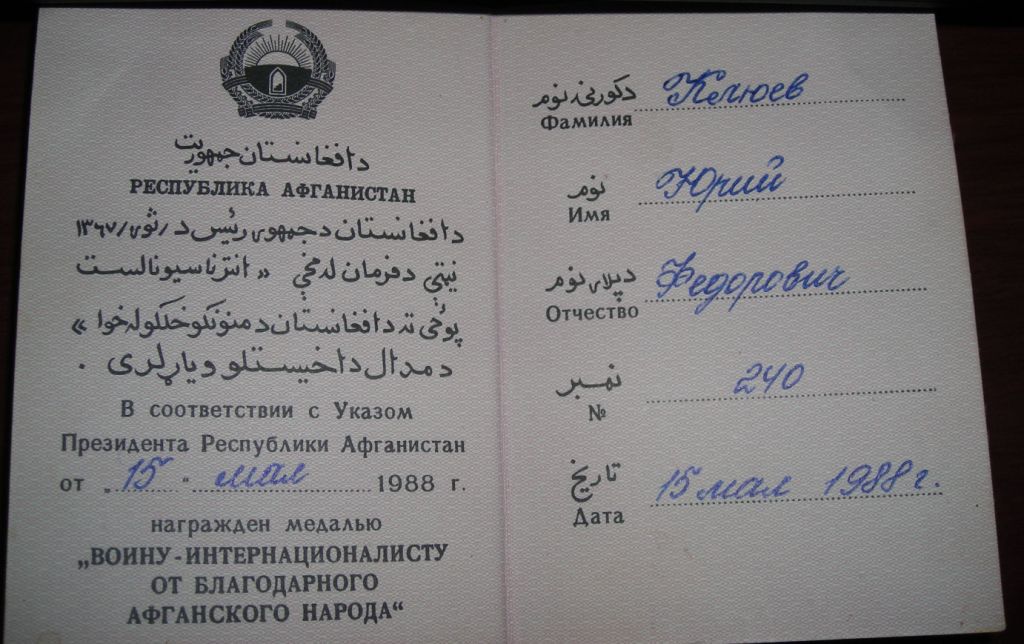 د افغانستان جمهوریت
РЕСПУБЛИКА АФГАНИСТАН
د افغانستان د جمهوری رئیس د / ثور / ۱۳٦۷
نیټې د فرمان له مخې « انترناسیونالست
پوځی ته د افغانستان د منونکو خلکو له خوا »
د مدال د اخیستلو ویاړ لری .
В соответствии с Указом
Президента Республики Афганистан
от „15" мая 1988 г.
награжден медалью
„ВОИНУ-ИНТЕРНАЦИОНАЛИСТУ
ОТ БЛАГОДАРНОГО
АФГАНСКОГО НАРОДА“
د کورنی نوم Клюев
Фамилия
نوم Юрий
Имя
د پلار نوم Федорович
Отчество
نمبر 240
№
تاریخ 15 мая 1988 г.
Дата